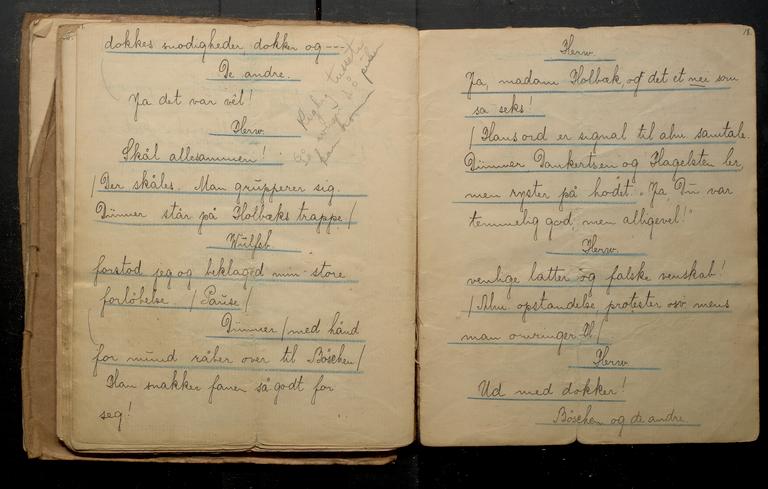 dokkes snodigheder, dokker og ---
De andre.
Ja det var vêl!
Herw.
Skål allesammen!
/ Der skåles. Man grupperer sig.
Dünner står på Holbæks trappe /
Wülfsb.
forstod jeg og beklaged min store
forløbelse. / Pause /
Dünner / med hånd
for mund råber over til Böschen /
Han snakker fanen så godt for
seg!
18.
Herw.
Ja, madam Holbæk, og det et nei som
sa seks!
/ Hans ord er signal til alm. samtale.
Dünner Dankertsen og Hagelsten ler
men ryster på hodet. "Ja, Du var
temmelig god, men alligevel!"
Herw.
venlige latter og falske venskab!
/ Alm. opstandelse, protester osv. mens
man omringer H. /
Herw.
Ud med dokker!
Böschen og de andre.